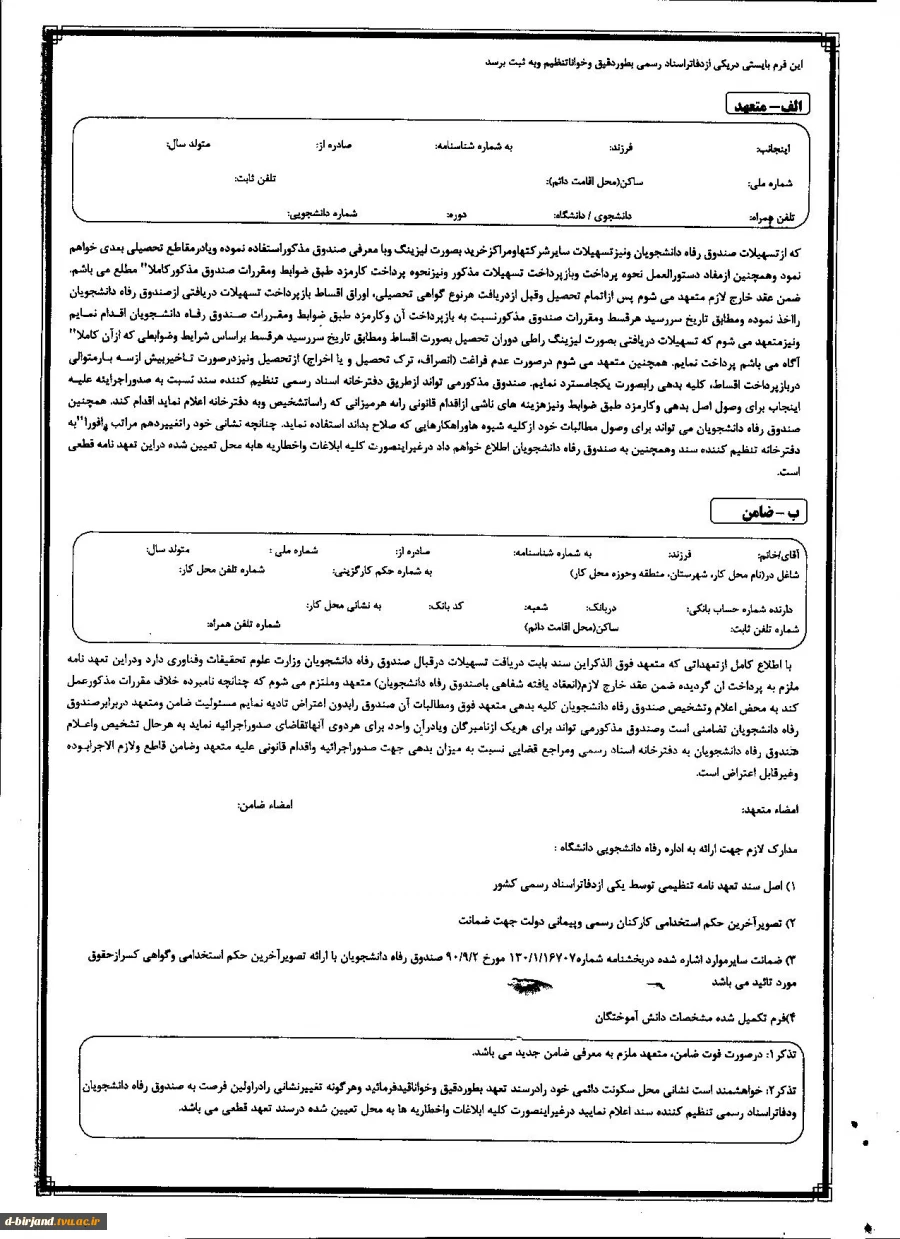 این فرم بایستی دریکی ازدفاتراسناد رسمی بطوردقیق وخواناتنظیم وبه ثبت برسد
الف- متعهد
اینجانب: فرزند: به شماره شناسنامه: صادره از: متولد سال:
شماره ملی: ساکن(محل اقامت دائم): تلفن ثابت:
تلفن همراه: دانشجوی / دانشگاه: دوره: شماره دانشجویی:
که ازتسهیلات صندوق رفاه دانشجویان ونیزتسهیلات سایرشرکتهاومراکزخرید بصورت لیزینگ وبا معرفی صندوق مذکوراستفاده نموده ویادرمقاطع تحصیلی بعدی خواهم
نمود وهمچنین ازمفاد دستورالعمل نحوه پرداخت وبازپرداخت تسهیلات مذکور ونیزنحوه پرداخت کارمزد طبق ضوابط ومقررات صندوق مذکورکاملا" مطلع می باشم.
ضمن عقد خارج لازم متعهد می شوم پس ازاتمام تحصیل وقبل ازدریافت هرنوع گواهی تحصیلی، اوراق اقساط بازپرداخت تسهیلات دریافتی ازصندوق رفاه دانشجویان
رااخذ نموده ومطابق تاریخ سررسید هرقسط ومقررات صندوق مذکورنسبت به بازپرداخت آن وکارمزد طبق ضوابط ومقررات صندوق رفاه دانشجویان اقدام نمایم
ونیزمتعهد می شوم که تسهیلات دریافتی بصورت لیزینگ راطی دوران تحصیل بصورت اقساط ومطابق تاریخ سررسید هرقسط براساس شرایط وضوابطی که ازآن کاملا"
آگاه می باشم پرداخت نمایم. همچنین متعهد می شوم درصورت عدم فراغت (انصراف، ترک تحصیل و یا اخراج) ازتحصیل ونیزدرصورت تاخیربیش ازسه بارمتوالی
دربازپرداخت اقساط، کلیه بدهی رابصورت یکجامسترد نمایم. صندوق مذکورمی تواند ازطریق دفترخانه اسناد رسمی تنظیم کننده سند نسبت به صدوراجرایئه علیه
اینجاب برای وصول اصل بدهی وکارمزد طبق ضوابط ونیزهزینه های ناشی ازاقدام قانونی رابه هرمیزانی که راساتشخیص وبه دفترخانه اعلام نماید اقدام کند. همچنین
صندوق رفاه دانشجویان می تواند برای وصول مطالبات خود ازکلیه شیوه هاوراهکارهایی که صلاح بداند استفاده نماید. چنانچه نشانی خود راتغییردهم مراتب رافورا"به
دفترخانه تنظیم کننده سند وهمچنین به صندوق رفاه دانشجویان اطلاع خواهم داد درغیراینصورت کلیه ابلاغات واخطاریه هابه محل تعیین شده دراین تعهد نامه قطعی
است.
ب- ضامن
آقای/خانم: فرزند: به شماره شناسنامه: صادره از: شماره ملی : متولد سال:
شاغل در(نام محل کار، شهرستان، منطقه وحوزه محل کار) به شماره حکم کارگزینی: شماره تلفن محل کار:
دارنده شماره حساب بانکی: دربانک: شعبه: کد بانک: به نشانی محل کار:
شماره تلفن ثابت: ساکن(محل اقامت دائم) شماره تلفن همراه:
با اطلاع کامل ازتعهداتی که متعهد فوق الذکراین سند بابت دریافت تسهیلات درقبال صندوق رفاه دانشجویان وزارت علوم تحقیقات وفناوری دارد ودراین تعهد نامه
ملزم به پرداخت آن گردیده ضمن عقد خارج لازم(انعقاد یافته شفاهی باصندوق رفاه دانشجویان) متعهد وملتزم می شوم که چنانچه نامبرده خلاف مقررات مذکورعمل
کند به محض اعلام وتشخیص صندوق رفاه دانشجویان کلیه بدهی متعهد فوق ومطالبات آن صندوق رابدون اعتراض تادیه نمایم مسئولیت ضامن ومتعهد دربرابرصندوق
رفاه دانشجویان تضامنی است وصندوق مذکورمی تواند برای هریک ازنامبرگان ویادرآن واحد برای هردوی آنهاتقاضای صدوراجرائیه نماید به هرحال تشخیص واعلام
صندوق رفاه دانشجویان به دفترخانه اسناد رسمی ومراجع قضایی نسبت به میزان بدهی جهت صدوراجرائیه واقدام قانونی علیه متعهد وضامن قاطع ولازم الاجرابوده
وغیرقابل اعتراض است.
امضاء متعهد: امضاء ضامن:
مدارک لازم جهت ارائه به اداره رفاه دانشجویی دانشگاه :
۱) اصل سند تعهد نامه تنظیمی توسط یکی ازدفاتراسناد رسمی کشور
۲) تصویرآخرین حکم استخدامی کارکنان رسمی وپیمانی دولت جهت ضمانت
۳) ضمانت سایرموارد اشاره شده دربخشنامه شماره۱۳۰/۱/۱۶۷۰۷ مورخ ۹۰/۹/۲ صندوق رفاه دانشجویان با ارائه تصویرآخرین حکم استخدامی وگواهی کسرازحقوق
مورد تائید می باشد
۴)فرم تکمیل شده مشخصات دانش آموختگان
تذکر۱: درصورت فوت ضامن، متعهد ملزم به معرفی ضامن جدید می باشد.
تذکر۲: خواهشمند است نشانی محل سکونت دائمی خود رادرسند تعهد بطوردقیق وخواناقیدفرمائید وهرگونه تغییرنشانی رادراولین فرصت به صندوق رفاه دانشجویان
ودفاتراسناد رسمی تنظیم کننده سند اعلام نمایید درغیراینصورت کلیه ابلاغات واخطاریه ها به محل تعیین شده درسند تعهد قطعی می باشد.
d-birjand.tvu.ac.ir